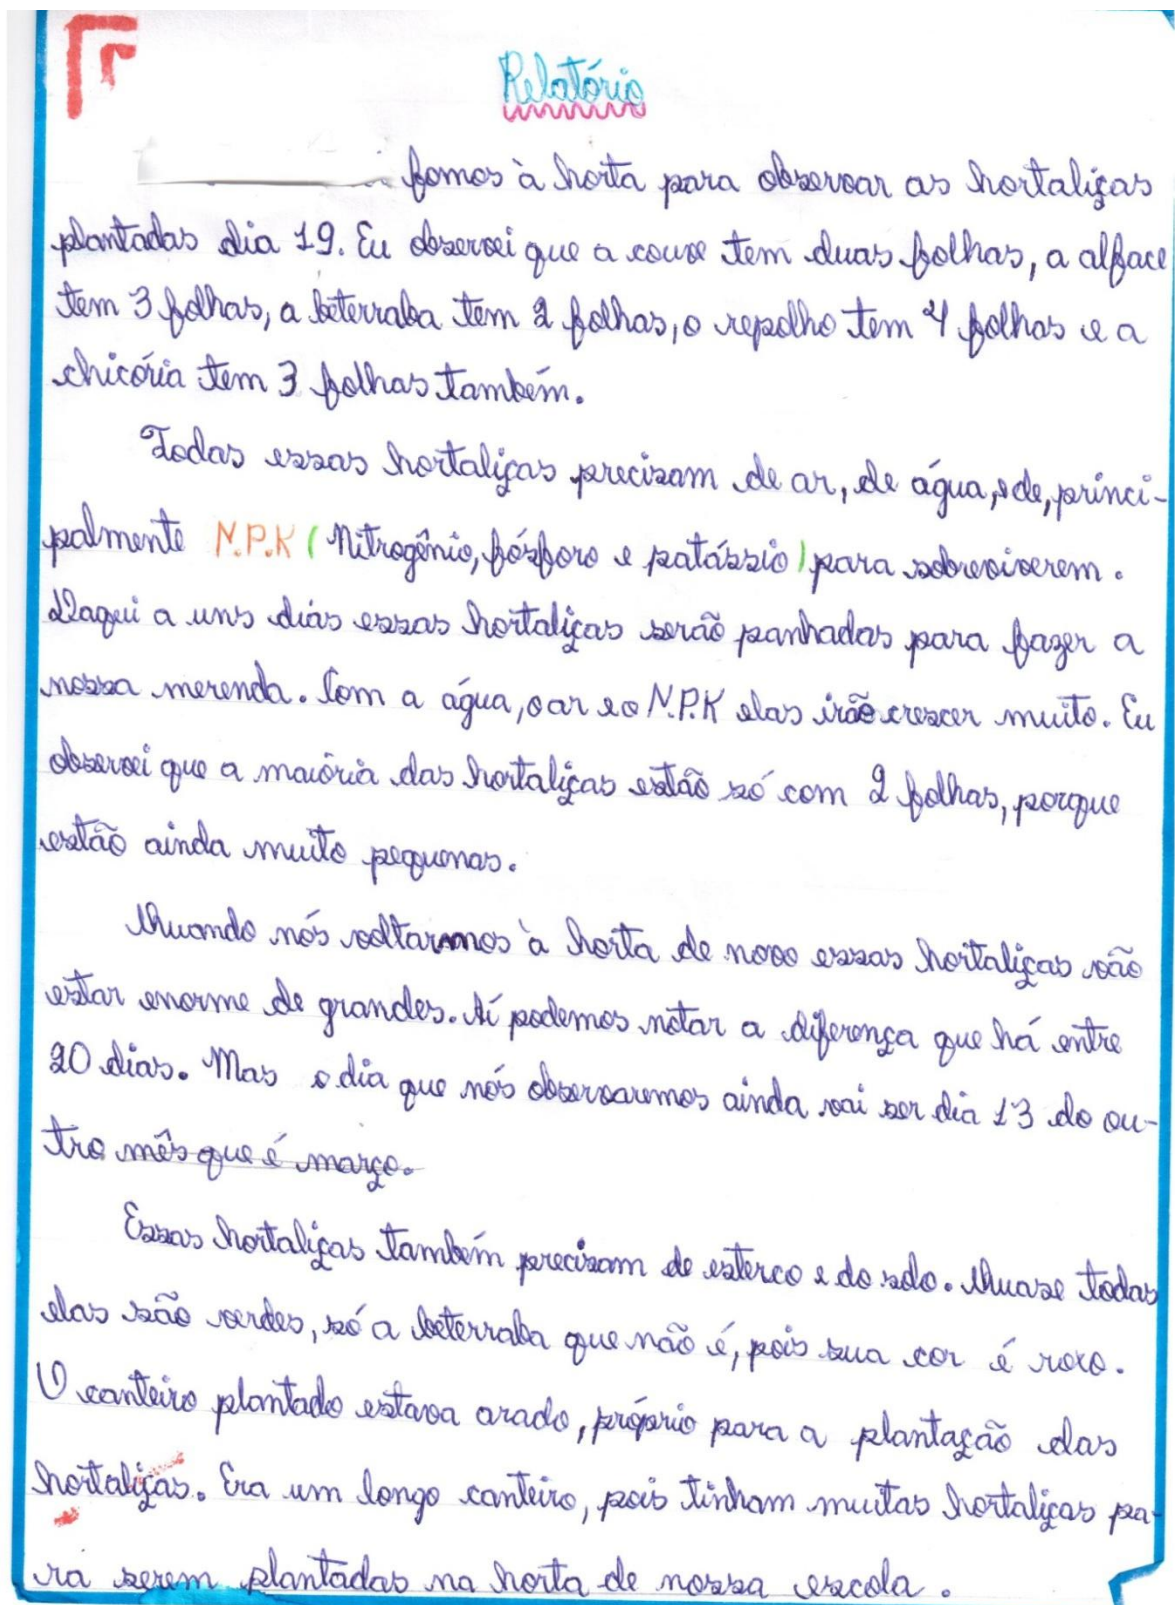 Relatório
fomos à horta para observar as hortaliças
plantadas dia 19. Eu observei que a couve tem duas folhas, a alface
tem 3 folhas, a beterraba tem 2 folhas, o repolho tem 4 folhas e a
chicória tem 3 folhas também.
Todas essas hortaliças precisam de ar, de água, e de, princi-
palmente N.P.K (Nitrogênio, fósforo e patássio) para sobreviverem.
Daqui a uns dias essas hortaliças serão panhadas para fazer a
nossa merenda. Com a água, o ar e o N.P.K elas irão crescer muito. Eu
observei que a maioria das hortaliças estão só com 2 folhas, porque
estão ainda muito pequenas.
Quando nós voltarmos à horta de novo essas hortaliças vão
estar enorme de grandes. Aí podemos notar a diferença que há entre
20 dias. Mas o dia que nós observaremos ainda vai ser dia 13 do ou-
tro mês que é março.
Essas hortaliças também precisam de esterco e do solo. Quase todas
elas são verdes, só a beterraba que não é, pois sua cor é roxo.
O canteiro plantado estava arado, próprio para a plantação das
hortaliças. Era um longo canteiro, pois tinham muitas hortaliças pa-
ra serem plantadas na horta de nossa escola.